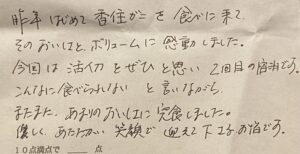 昨年はじめて香住ガニを食べに来て
そのおいしさと、ボリュームに感動しました。
今回は活ガニをぜひと思い2回目の宿泊です。
こんなに食べられないと言いながら、
またまた、あまりのおいしさに完食しました。
優しく、あたたかい笑顔で迎えて下さるお宿です。
10点満点で____点